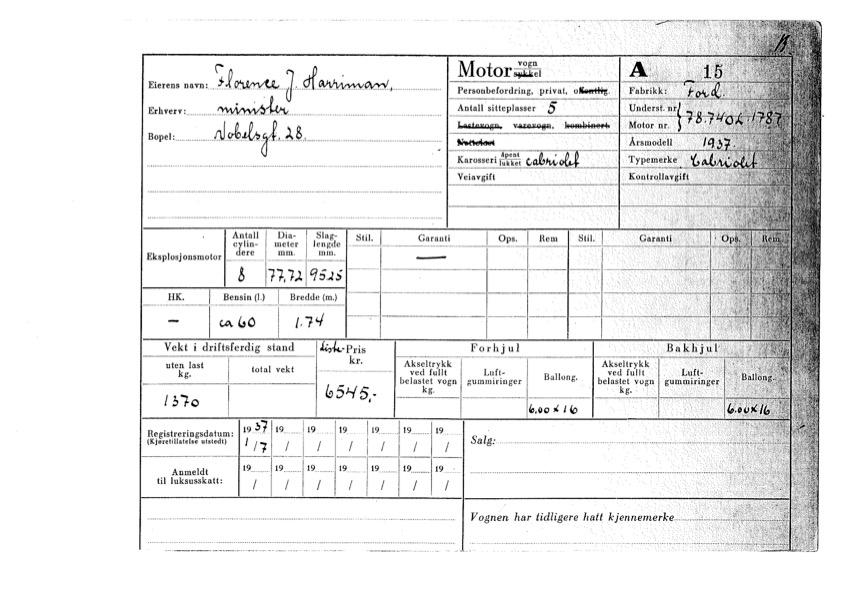 15
Eierens navn: Florence J. Harriman,
Erhverv: minister
Bopel: Nobelsgt. 28.
Motor vogn sykkel
Personbefordring, privat, offentlig.
Antall sitteplasser 5
Lastevogn, varevogn, kombinert
Karosseri åpent lukket cabriolet
Veiavgift
A 15
Fabrikk: Ford.
Underst. nr. Motor nr. } 78.740a.1787
Årsmodell 1937.
Typemerke Cabriolet
Kontrollavgift
Eksplosjonsmotor
Antall cylindere
Diameter mm.
Slaglengde mm.
8 77,72 95.25
HK. Bensin (l.) Bredde (m.)
— ca 60 1.74
Stil. Garanti Ops. Rem Stil. Garanti Ops. Rem.
—
Vekt i driftsferdig stand
uten last kg. total vekt
1370
liste-Pris kr.
6545,-
Forhjul
Akseltrykk ved fullt belastet vogn kg.
Luftgummiringer
Ballong.
6.00 x 16
Bakhjul
Akseltrykk ved fullt belastet vogn kg.
Luftgummiringer
Ballong.
6.00 x 16
Registreringsdatum: 19 37 19 19 19 19 19 19
(Kjøretillatelse utstedt) 1/7 / / / / / /
Anmeldt til luksusskatt: 19 19 19 19 19 19 19
/ / / / / / /
Salg:
Vognen har tidligere hatt kjennemerke